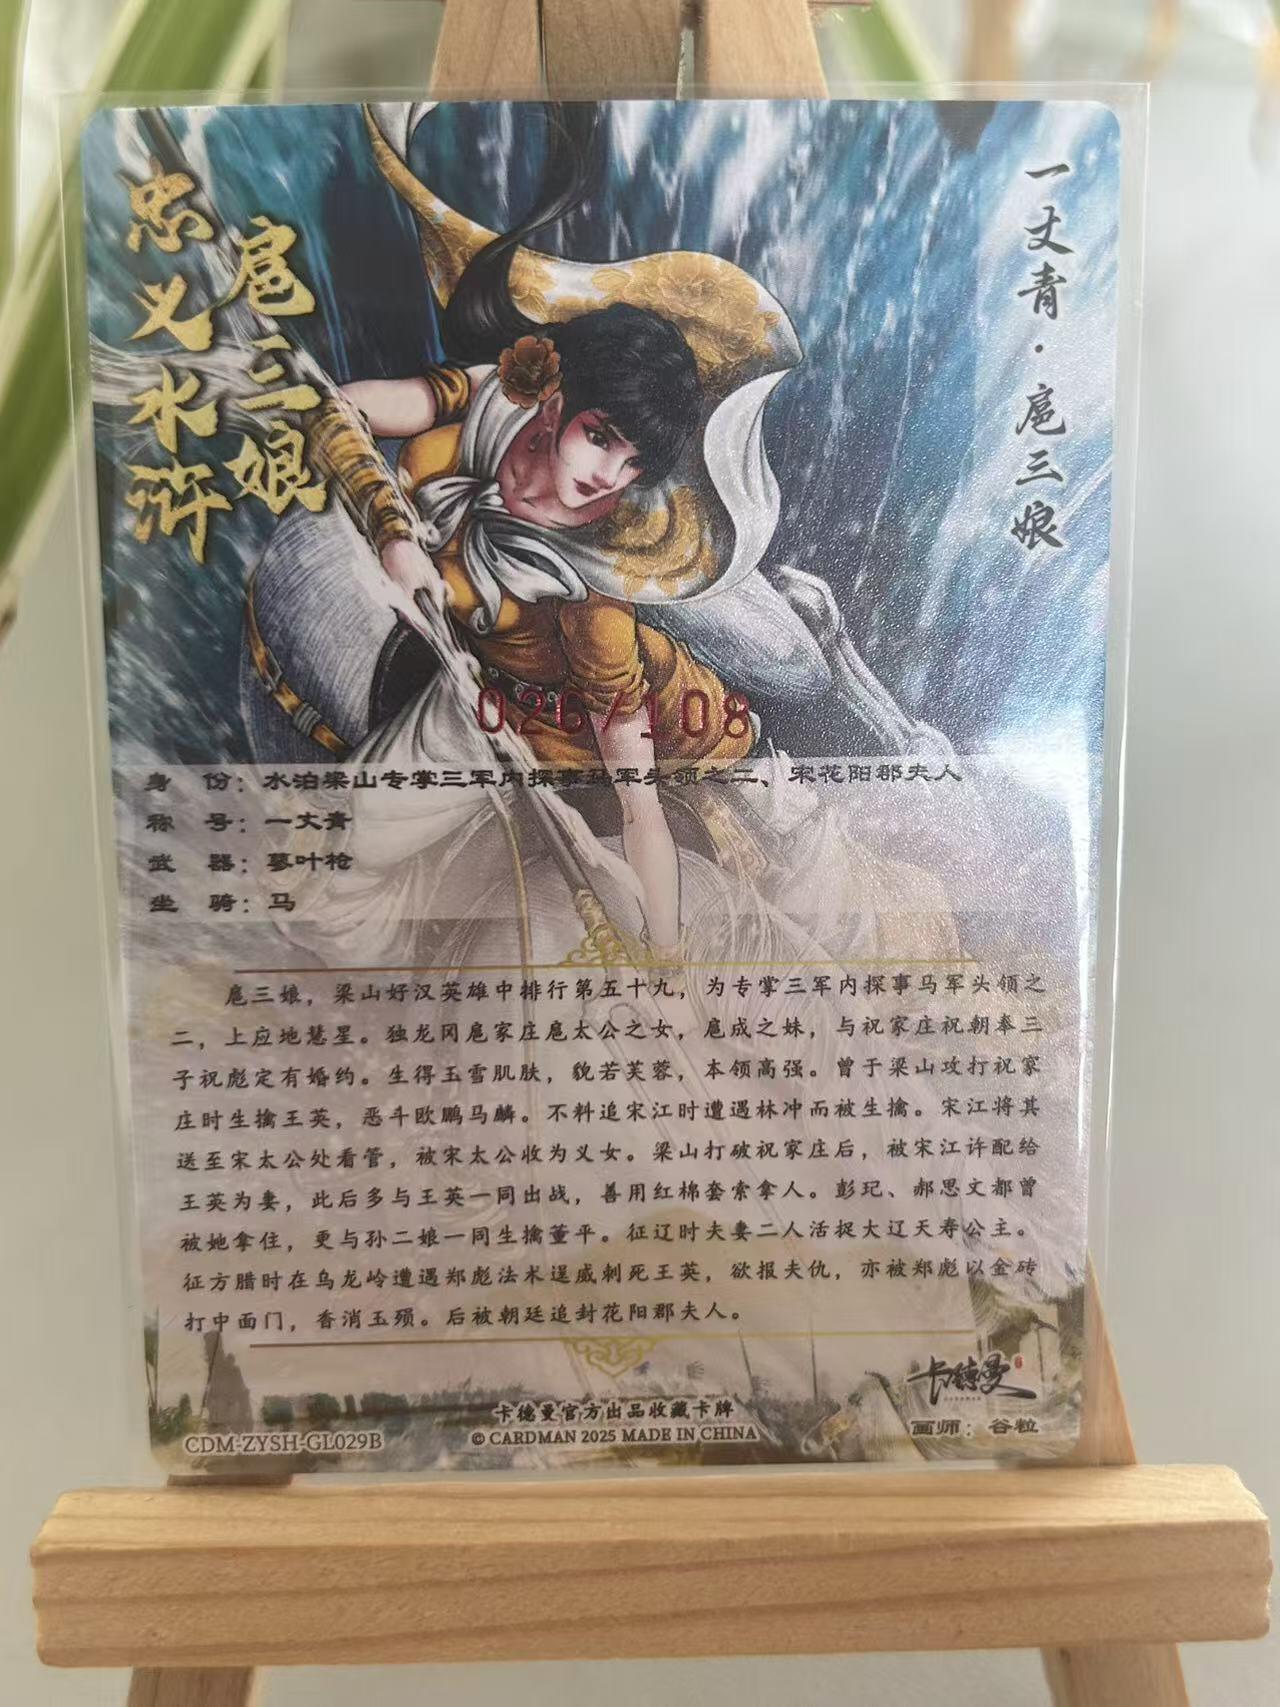 忠义水浒
扈三娘
一丈青·扈三娘
026/108
身 份：水泊梁山专掌三军内探事马军头领之二、宋花阳郡夫人
称 号：一丈青
武 器：蓼叶枪
坐 骑：马
扈三娘，梁山好汉英雄中排行第五十九，为专掌三军内探事马军头领之
二，上应地慧星。独龙冈扈家庄扈太公之女，扈成之妹，与祝家庄祝朝奉三
子祝彪定有婚约。生得玉雪肌肤，貌若芙蓉，本领高强。曾于梁山攻打祝家
庄时生擒王英，恶斗欧鹏马麟。不料追宋江时遭遇林冲而被生擒。宋江将其
送至宋太公处看管，被宋太公收为义女。梁山打破祝家庄后，被宋江许配给
王英为妻，此后多与王英一同出战，善用红棉套索拿人。彭玘、郝思文都曾
被她拿住，更与孙二娘一同生擒董平。征辽时夫妻二人活捉大辽天寿公主。
征方腊时在乌龙岭遭遇郑彪法术逞威刺死王英，欲报夫仇，亦被郑彪以金砖
打中面门，香消玉殒。后被朝廷追封花阳郡夫人。
卡德曼
卡德曼官方出品收藏卡牌
CDM-ZYSH-GL029B
© CARDMAN 2025 MADE IN CHINA
画师：谷粒